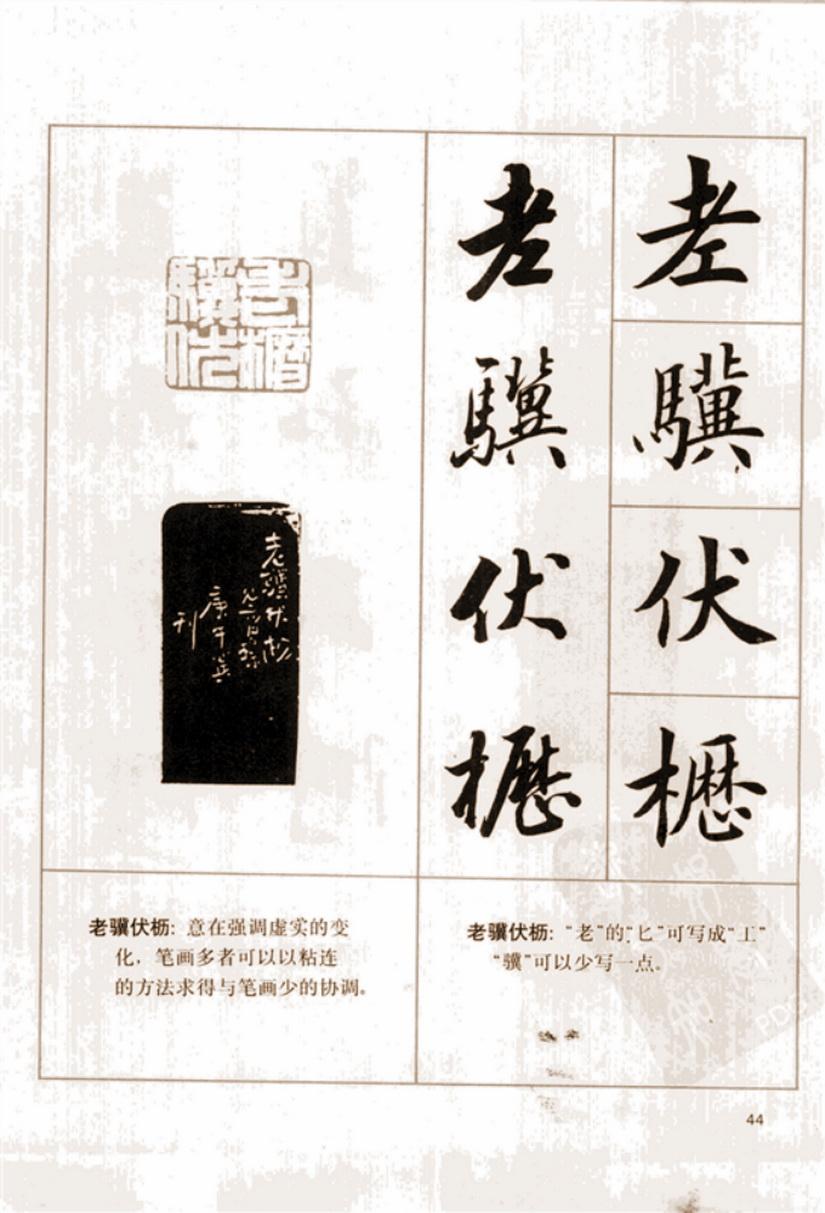 老驥伏櫪
老驥伏櫪
老驥伏櫪
老驥伏
刊
老骥伏枥：意在强调虚实的变
化，笔画多者可以以粘连
的方法求得与笔画少的协调。
老骥伏枥：“老”的“匕”可写成“工”
“骥”可以少写一点。
44
PDG